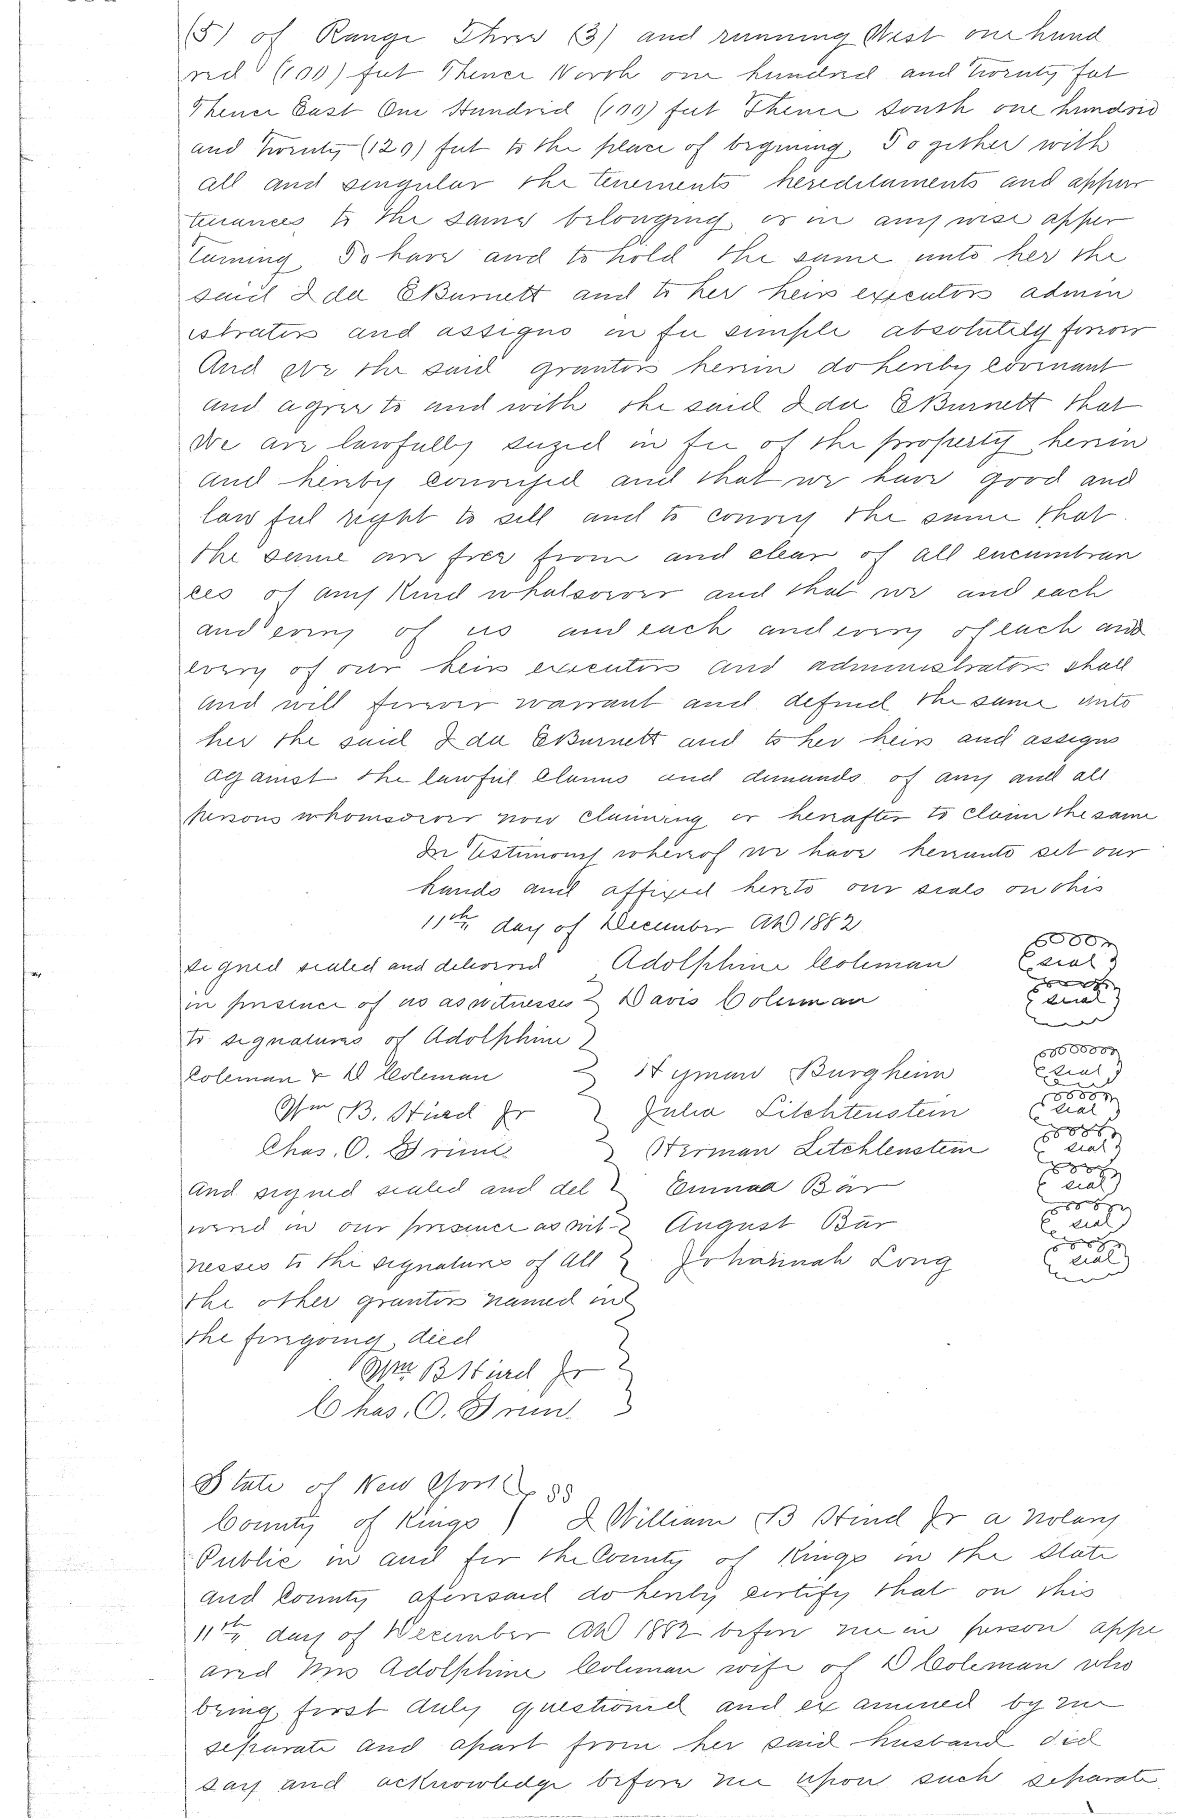 (5) of Range Three (3) and running West one hund
red (100) feet Thence North one hundred and Twenty feet
Thence East One Hundred (100) feet Thence South one hundred
and Twenty (120) feet to the place of begining, Together with
all and singular the tenements hereditaments and appur
tenances to the same belonging or in any wise apper
taining To have and to hold the same unto her the
said Ida E Burnett and to her heirs executors admin
istrators and assigns in fee simple absolutely forever
And We the said grantors herein do hereby covenant
and agree to and with the said Ida E Burnett that
We are lawfully seized in fee of the property herein
and hereby conveyed and that we have good and
lawful right to sell and to convey the same that
the same are free from and clear of all encumbran
ces of any Kind whatsoever and that we and each
and every of us and each and every of each and
every of our heirs executors and administrators shall
and will forever warrant and defend the same unto
her the said Ida E Burnett and to her heirs and assigns
against the lawful claims and demands of any and all
persons whomsoever now claiming or hereafter to claim the same
In Testimony whereof we have hereunto set our
hands and affixed hereto our seals on this
11th day of December AD 1882
signed sealed and delivered Adolphine Coleman seal
in presence of us as witnesses Davis Coleman seal
to signatures of Adolphine
Coleman & D Coleman Hyman Burgheim seal
Wm B. Hurd Jr Julia Litchtenstein seal
Chas. O. Herman Litchtenstein seal
And signed sealed and del Emma Bär seal
vered in our presence as wit August Bär seal
nesses to the signatures of all Johannah Long seal
the other grantors named in
the foregoing deed
Wm B Hurd Jr
Chas. O.
State of New York ss
County of Kings ) I William B Hurd Jr a Notary
Public in and for the County of Kings in the State
and County aforesaid do hereby certify that on this
11th day of December AD 1882 before me in person appe
ared Mrs Adolphine Coleman wife of D Coleman who
being first duly questioned and examined by me
separate and apart from her said husband did
say and acknowledge before me upon such separate